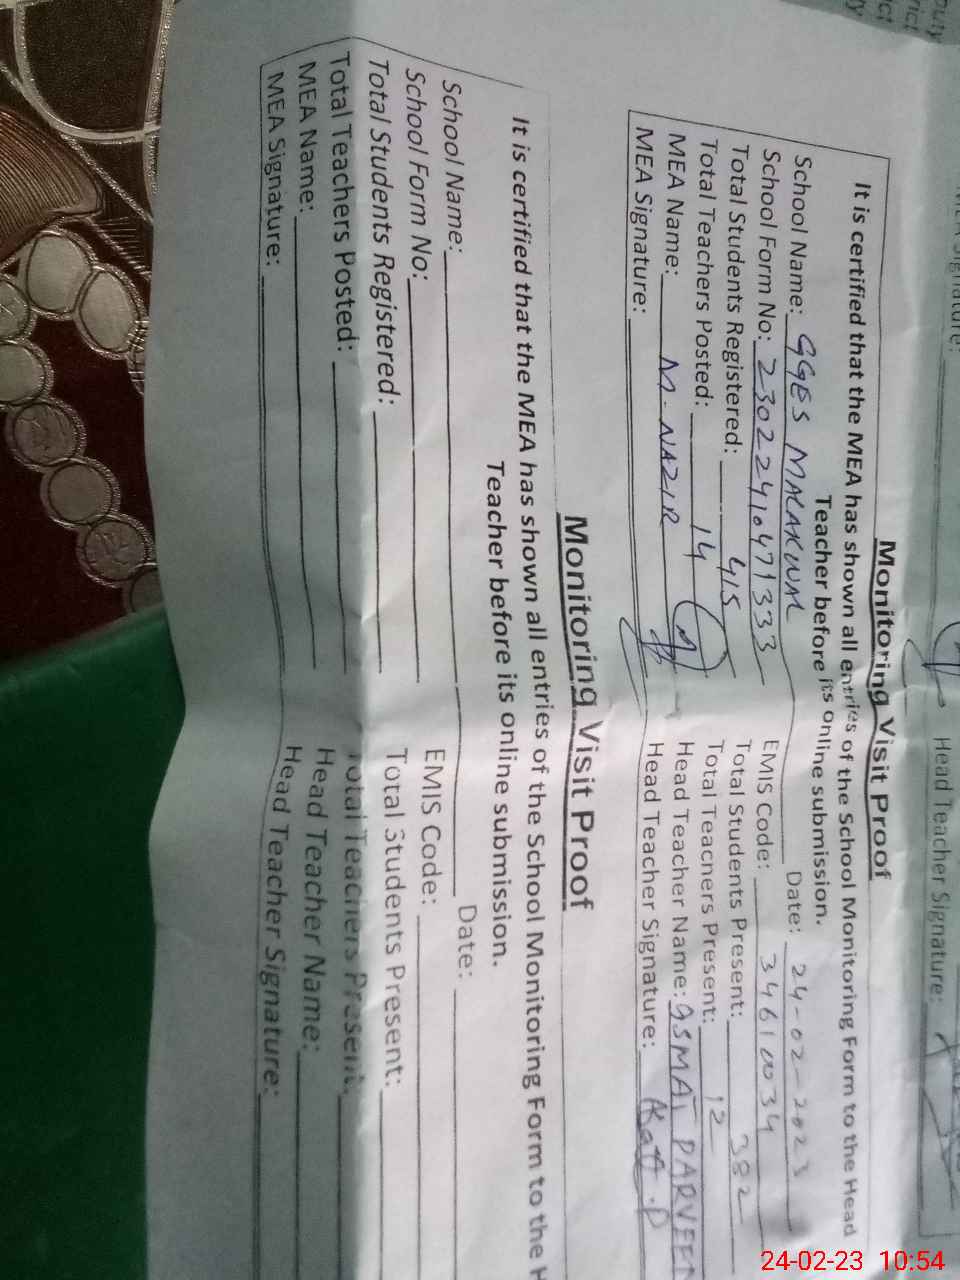 Head Teacher Signature:
Monitoring Visit Proof
It is certified that the MEA has shown all entries of the School Monitoring Form to the Head
Teacher before its online submission.
School Name: GGES MALAKWAL Date: 24-02-2023
School Form No: 23022410471333 EMIS Code: 34610034
Total Students Registered: 415 Total Students Present: 382
Total Teachers Posted: 14 Total Teachers Present: 12
MEA Name: M. NAZIR Head Teacher Name: PARVEEN
MEA Signature: Head Teacher Signature:
Monitoring Visit Proof
It is certified that the MEA has shown all entries of the School Monitoring Form to the H
Teacher before its online submission.
School Name: Date:
School Form No: EMIS Code:
Total Students Registered: Total Students Present:
Total Teachers Posted: Total Teachers Present:
MEA Name: Head Teacher Name:
MEA Signature: Head Teacher Signature:
24-02-23 10:54